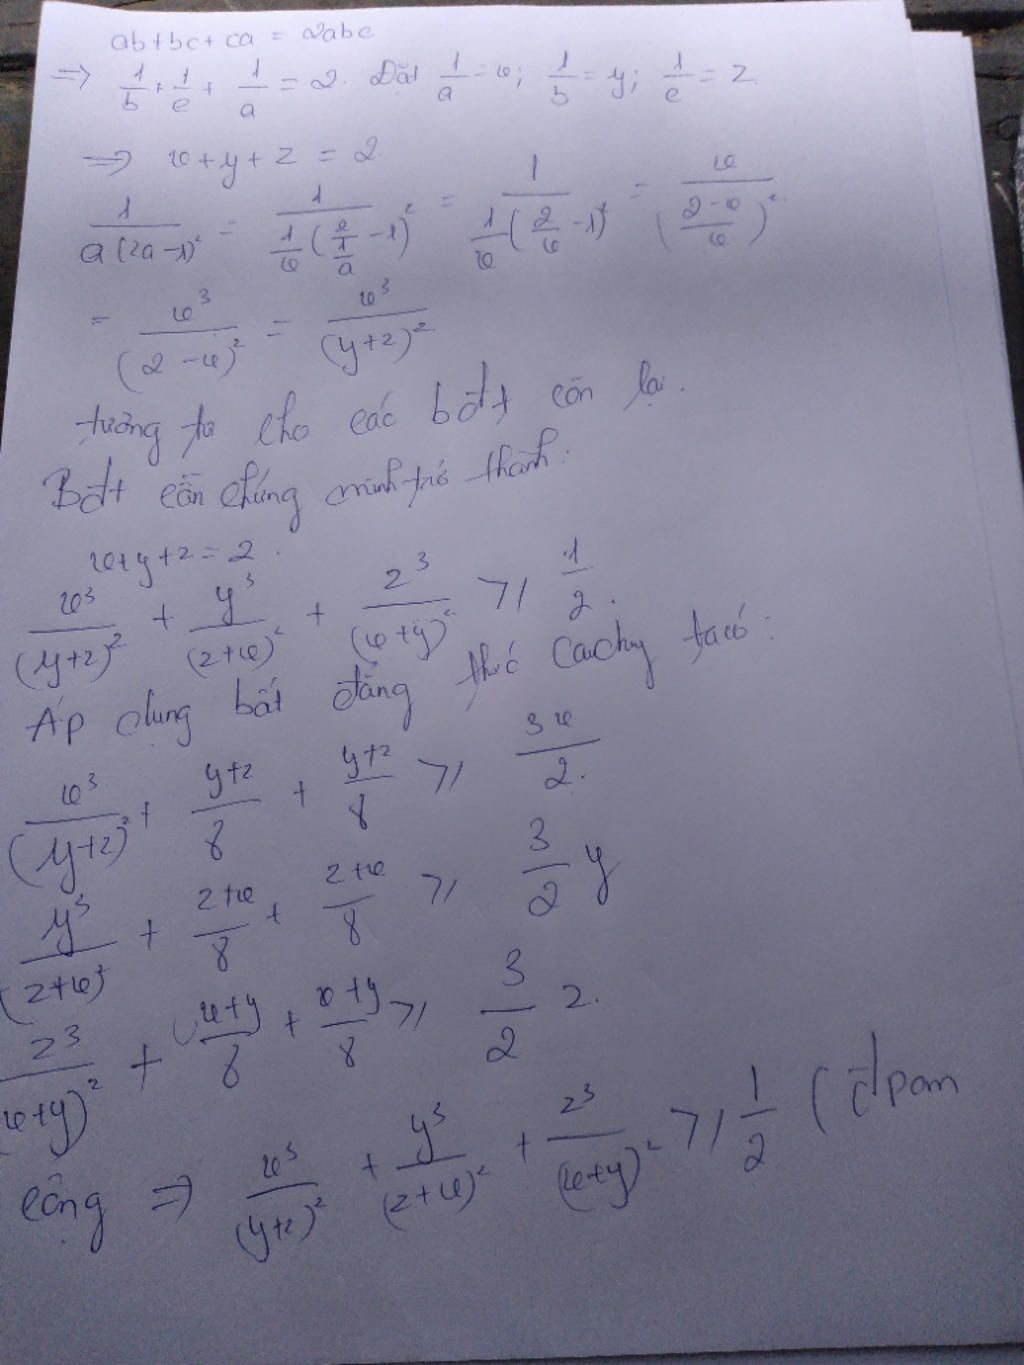 ab+bc+ca = 2abc
=> 1/b + 1/c + 1/a = 2. Đặt 1/a = x; 1/b = y; 1/c = z
=> x+y+z = 2.
1/(a(2a-1)²) = 1/((1/x)(2/(1/a) - 1)²) = 1/((1/x)(2/x - 1)²) = x/((2-x)/x)²
= x³/(2-x)² = x³/(y+z)²
tương tự cho các bđt còn lại.
Bđt cần chứng minh trở thành:
x+y+z = 2.
x³/(y+z)² + y³/(z+x)² + z³/(x+y)² ≥ 1/2.
Áp dụng bất đẳng thức Cauchy ta có:
x³/(y+z)² + (y+z)/8 + (y+z)/8 ≥ 3x/2.
y³/(z+x)² + (z+x)/8 + (z+x)/8 ≥ 3/2 y
z³/(x+y)² + (x+y)/8 + (x+y)/8 ≥ 3/2 z.
cộng => x³/(y+z)² + y³/(z+x)² + z³/(x+y)² ≥ 1/2 (đpcm